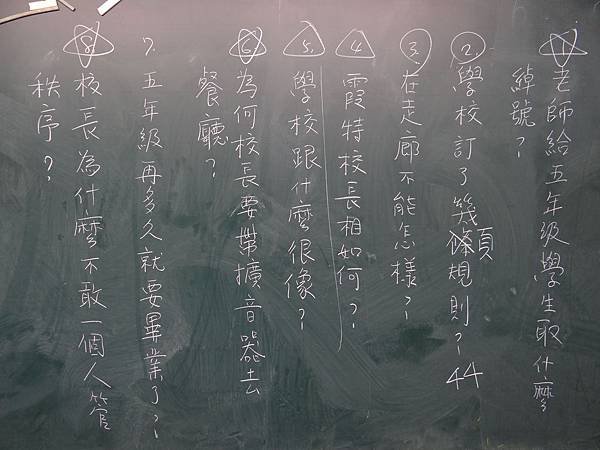 1. 老師給五年級學生取什麼
綽號？
2. 學校訂了幾條項規則？44
3. 在走廊不能怎樣？
4. 霞特校長相如何？
5. 學校跟什麼很像？
6. 為何校長要帶擴音器去
餐廳？
7. 五年級再多久就要畢業了？
8. 校長為什麼不敢一個人管
秩序？